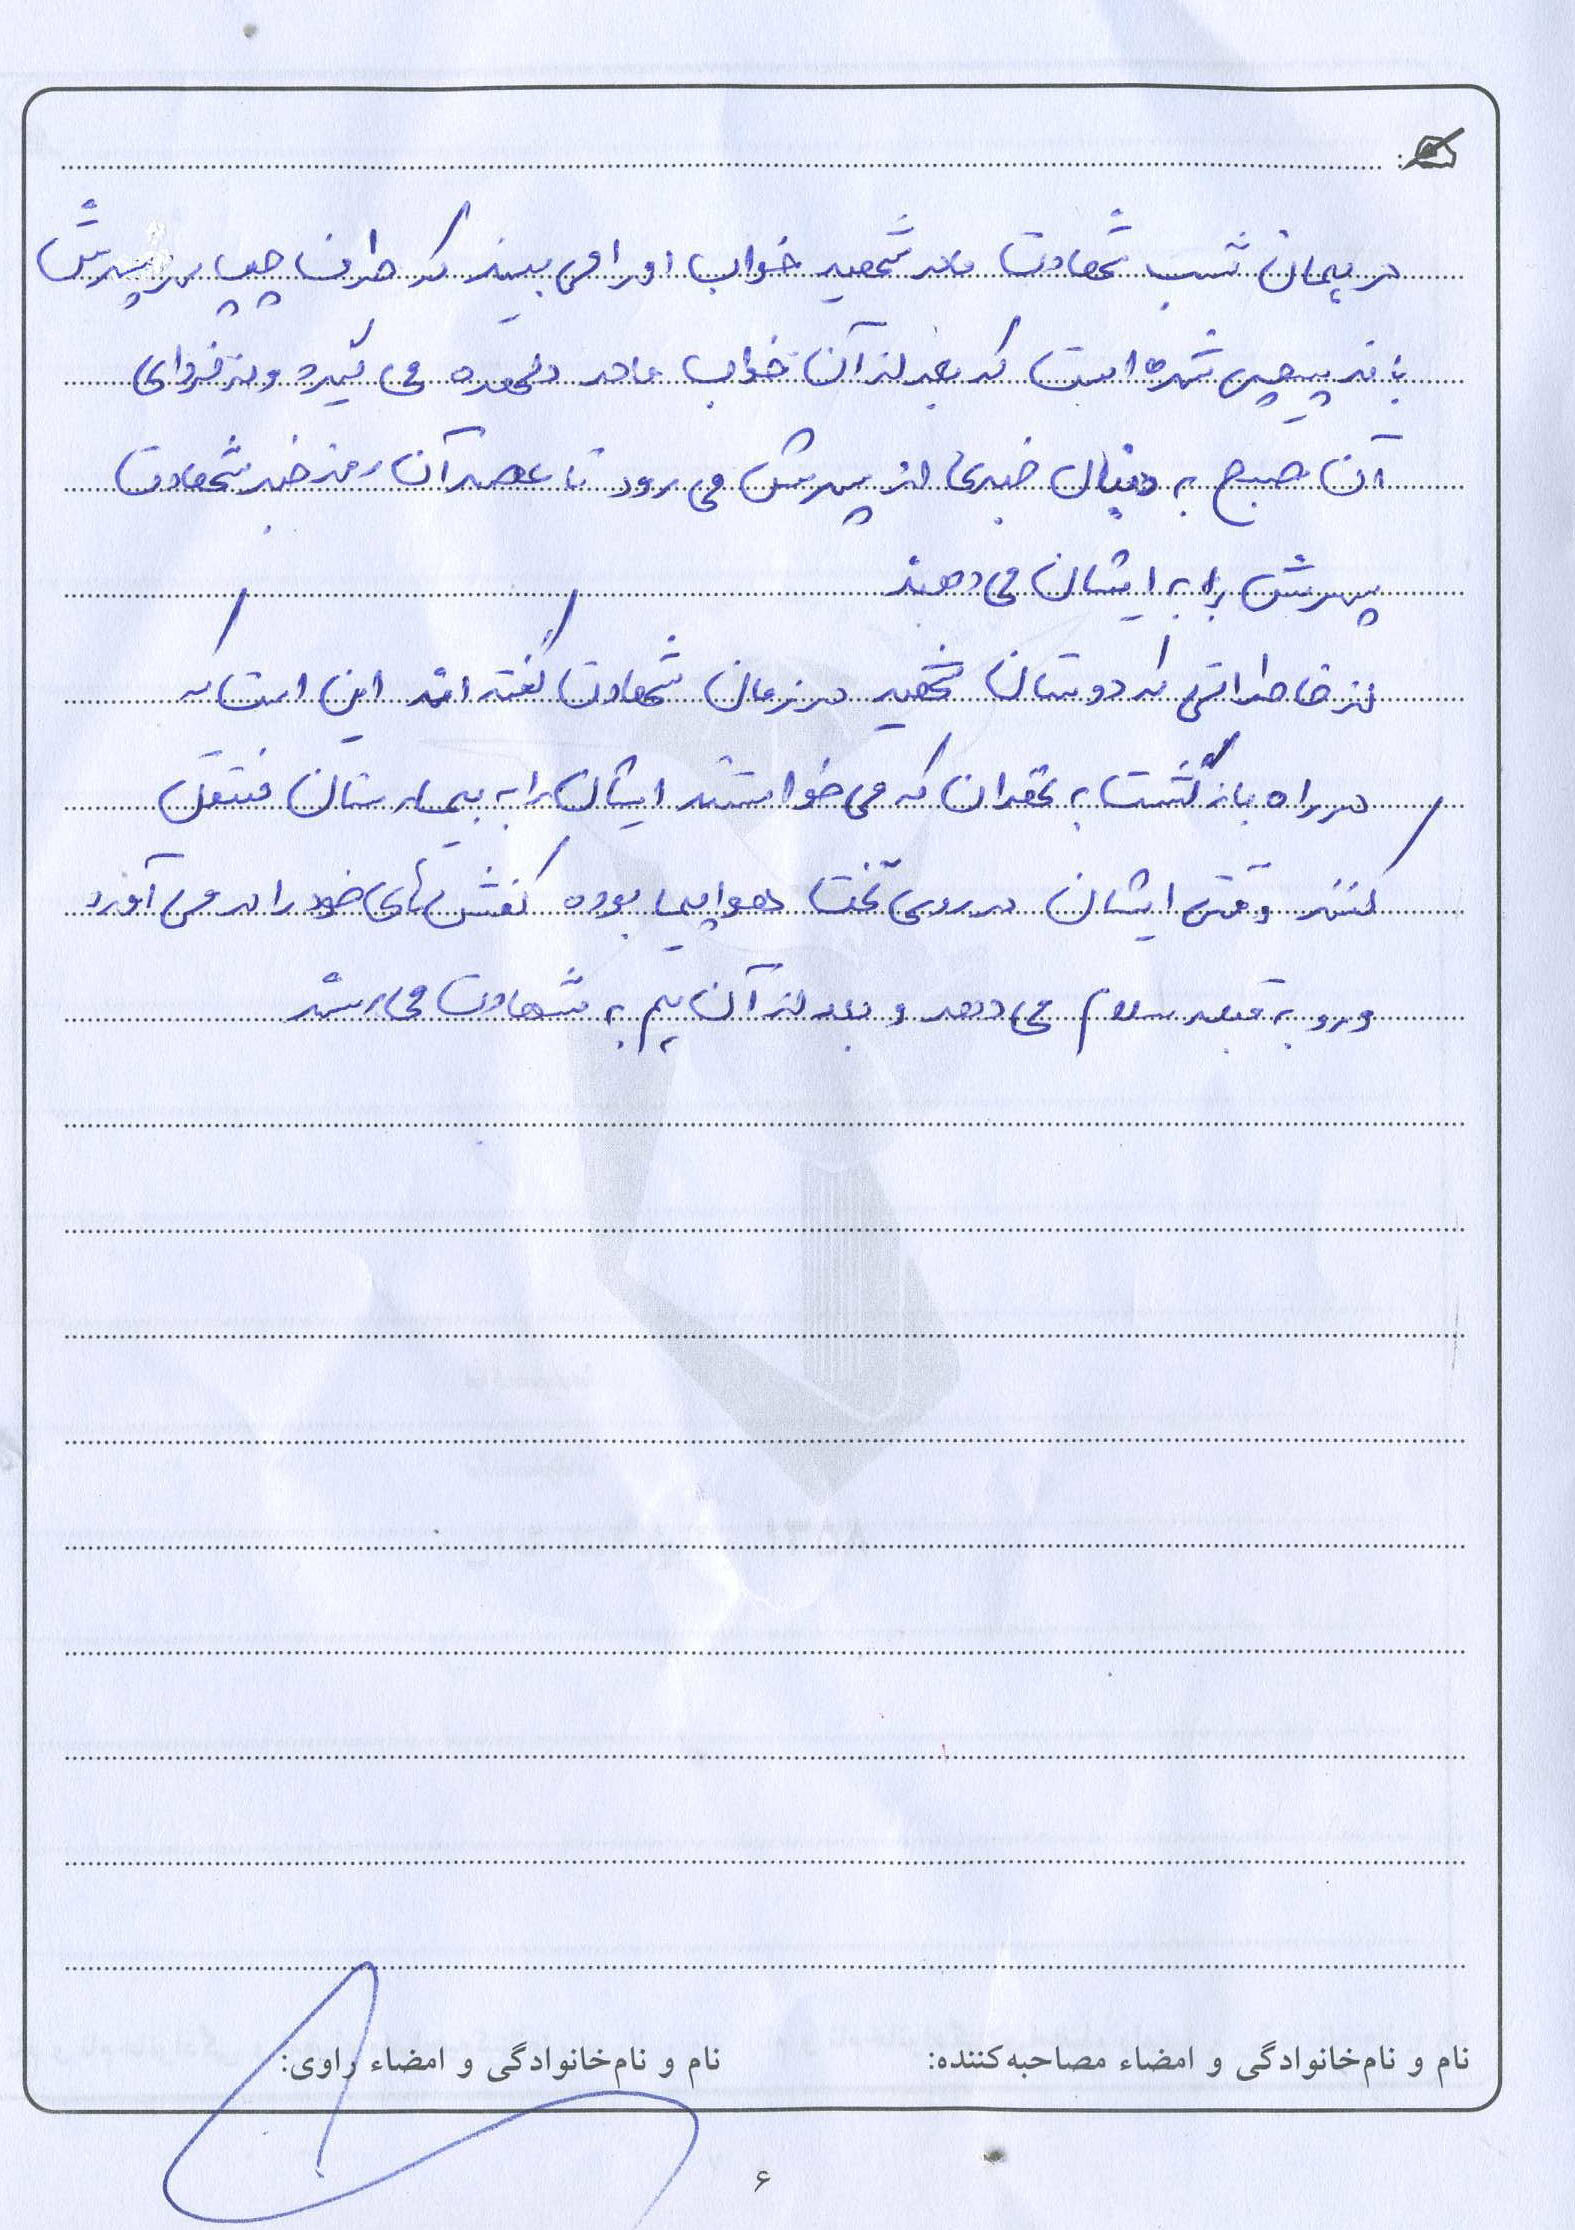 در همان شب شهادت مادر شهید خواب او را می بیند که طرف چپ سر پسرش
باند پیچی شده است که بعد از آن خواب مادر دلهره می گیرد و از فردای
آن صبح به دنبال خبری از پسرش می رود تا عصر آن روز خبر شهادت
پسرش را به ایشان می دهند
از خاطراتی که دوستان شهید در زمان شهادت گفته اند این است که
در راه بازگشت به تهران که می خواستند ایشان را به بیمارستان منتقل
کنند وقتی ایشان در روی تخت هواپیما بوده کفش های خود را در می آورد
و رو به قبله سلام می دهد و بعد از آن هم به شهادت می رسد
نام و نام‌خانوادگی و امضاء مصاحبه‌کننده: نام و نام‌خانوادگی و امضاء راوی:
۶